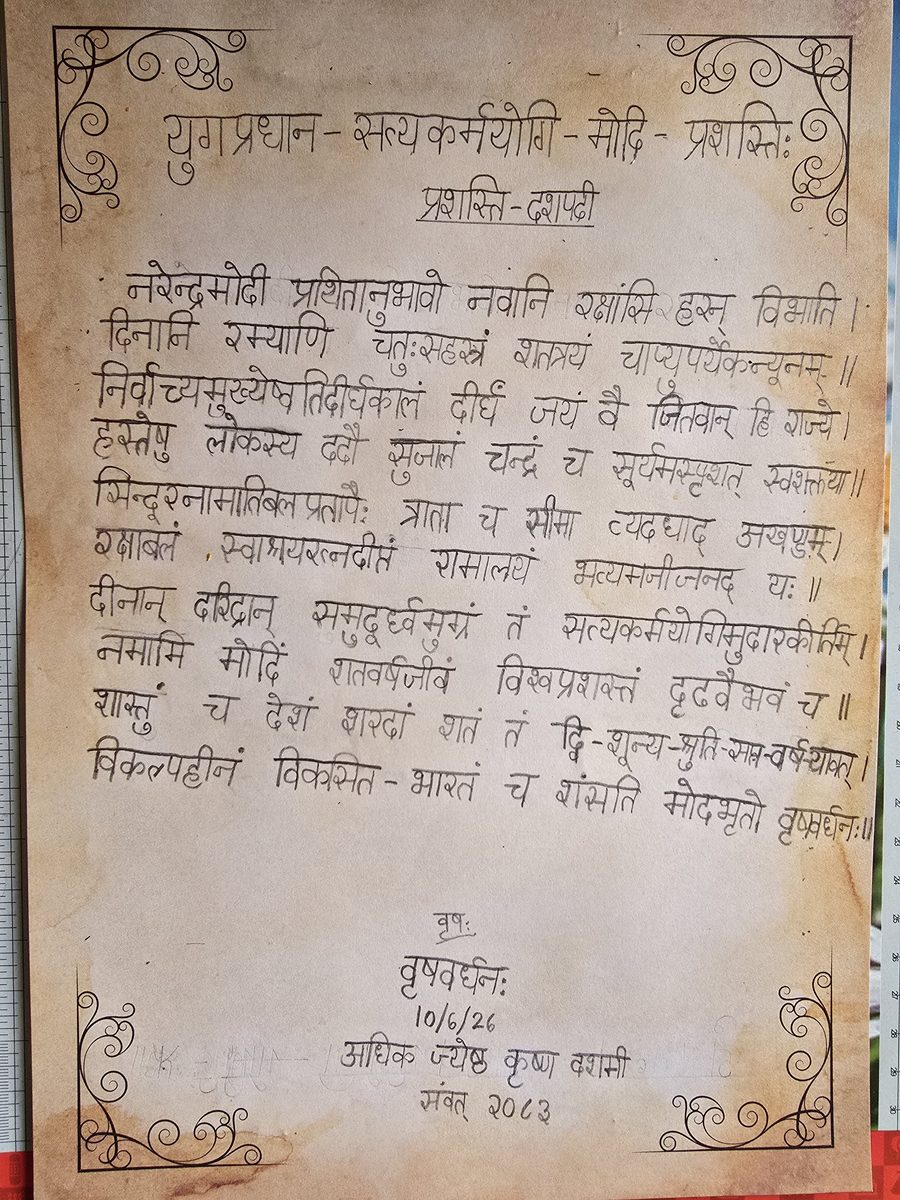 युगप्रधान - सत्यकर्मयोगि - मोदि - प्रशस्तिः
प्रशस्ति - दशपदी
नरेन्द्रमोदी प्रथितानुभावो नवानि रक्षांसि हरन् विभाति ।
दिनानि रम्याणि चतुःसहस्रं शतत्रयं चाप्युपर्येकन्यूनम् ॥
निर्वाच्यमुख्येष्वतिदीर्घकालं दीर्घं जयं वै जितवान् हि राज्ये ।
हस्तेषु लोकस्य ददौ सुजालं चन्द्रं च सूर्यमस्पृशत् स्वशक्त्या ॥
सिन्दूरनामातिबलप्रतापैः त्राता च सीमा व्यदधाद् अखण्डम् ।
रक्षाबलं स्वाश्रयरत्नदीप्तं रामालयं भव्यमजीजनद् यः ॥
दीनान् दरिद्रान् तं सत्यकर्मयोगिमुदारकीर्तिम् ।
नमामि मोदिं शतवर्षजीवं विश्वप्रशस्तं दृढवैभवं च ॥
शास्तुं च देशं शरदां शतं तं द्वि-शून्य-श्रुति-सप्त-वर्ष-यावत् ।
विकल्पहीनं विकसित - भारतं च शंसति मोदभृतो वृषवर्धनः ॥
वृषः
वृषवर्धनः
10/6/26
अधिक ज्येष्ठ कृष्ण दशमी
संवत् २०८३